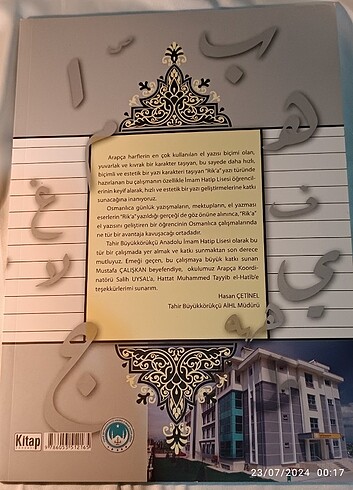 Arapça harflerin en çok kullanılan el yazısı biçimi olan,
yuvarlak ve kıvrak bir karakter taşıyan, bu sayede daha hızlı,
biçimli ve estetik bir yazı karakteri taşıyan "Rik'a" yazı türünde
hazırlanan bu çalışmanın özellikle İmam Hatip Lisesi öğrenci-
lerinin keyif alarak, hızlı ve estetik bir yazı geliştirmelerine katkı
sunacağına inanıyoruz.
Osmanlıca günlük yazışmaların, mektupların, el yazması
eserlerin "Rik'a" yazıldığı gerçeği de göz önüne alınınca, "Rik'a"
el yazısını geliştiren bir öğrencinin Osmanlıca çalışmalarında
ne tür bir avantaja kavuşacağı ortadadır.
Tahir Büyükkörükçü Anadolu İmam Hatip Lisesi olarak bu
tür bir çalışmada yer almak ve katkı sunmaktan son derece
mutluyuz. Emeği geçen, bu çalışmaya büyük katkı sunan
Mustafa ÇALIŞKAN beyefendiye, okulumuz Arapça Koordi-
natörü Salih UYSAL'a, Hattat Muhammed Tayyib el-Hatib'e
teşekkürlerimi sunarım.
Hasan ÇETİNEL
Tahir Büyükkörükçü AİHL Müdürü
Kitap
9 786053 512165
23/07/2024 00:17